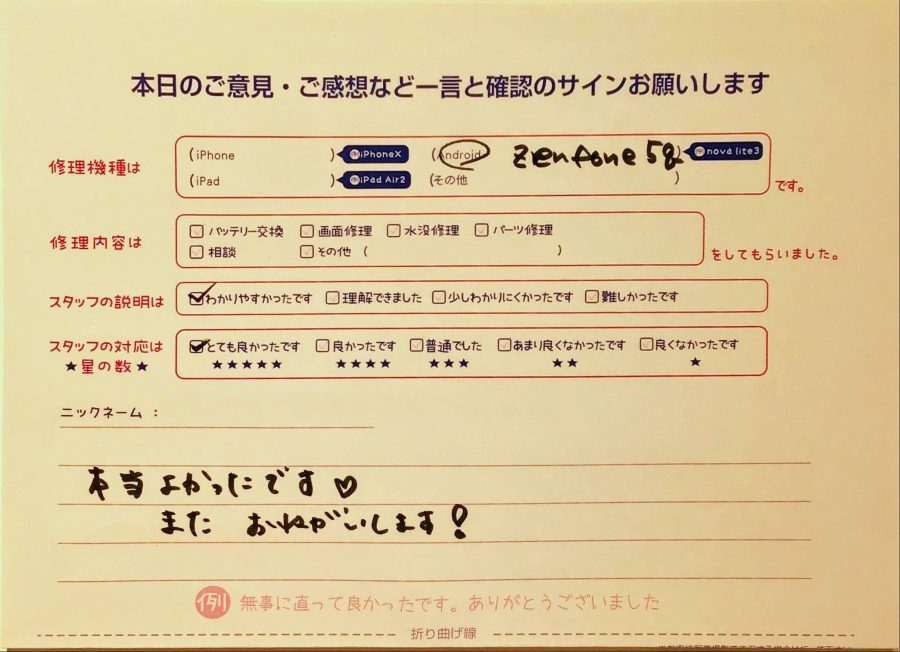 本日のご意見・ご感想など一言と確認のサインお願いします
修理機種は (iPhone )iPhoneX (Android zenfone 5q )nova lite3
(iPad )iPad Air2 (その他 ) です。
修理内容は バッテリー交換 画面修理 水没修理 パーツ修理
相談 その他 ( ) をしてもらいました。
スタッフの説明は わかりやすかったです 理解できました 少しわかりにくかったです 難しかったです
スタッフの対応は とても良かったです 良かったです 普通でした あまり良くなかったです 良くなかったです
★星の数★ ★★★★★ ★★★★ ★★★ ★★ ★
ニックネーム :
本当よかったです♡
また おねがいします!
例 無事に直って良かったです。ありがとうございました
折り曲げ線